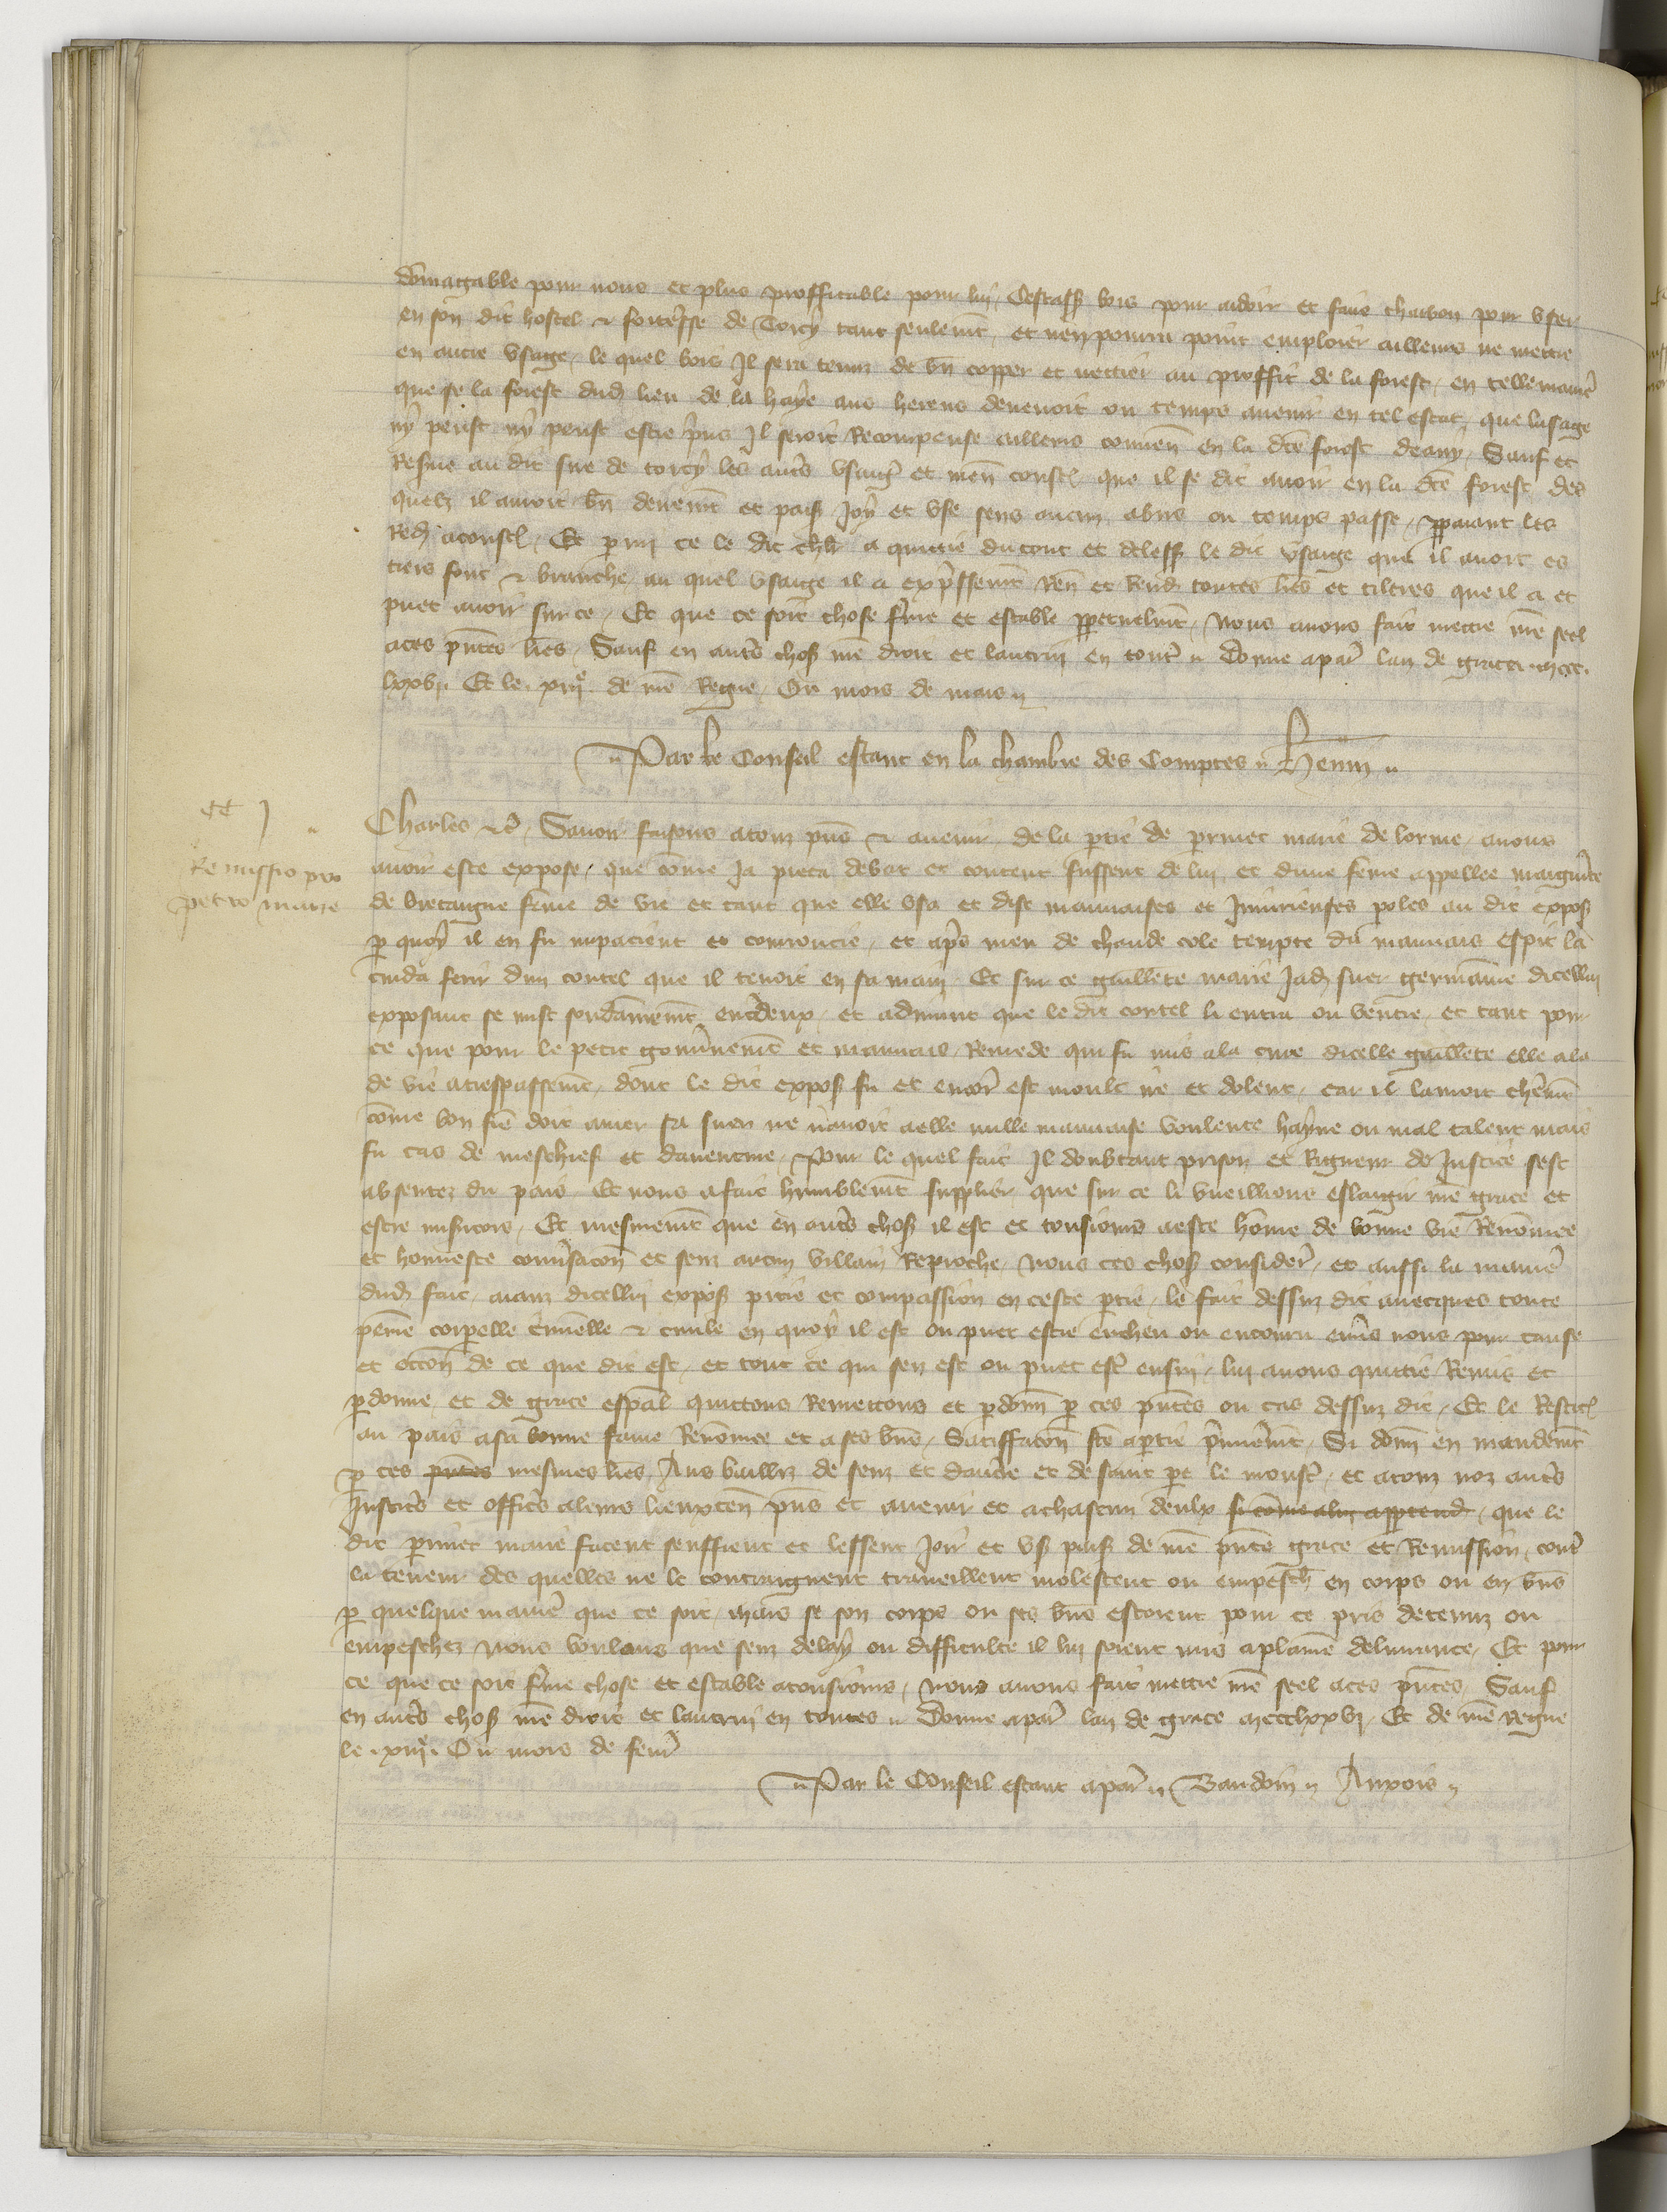 dōmagable pour nous et plus prossitable pour lui, Cestass bois pour ardoir et faire charbon pour user
en son dit hostel & forteresse de Torcy tant seulemt, et nen pourra point emploier ailleurs ne mettre
en autre usage, le quel bois Il sera tenuz de bn copper et nettier au proffit de la forest, en telle manie
que se la forest dud lieu de la haye aus herens devenoit ou temps avenir en tel estat, que lusage
ny peust ny peust estre pns Il seroit Recompense ailleurs en la dce forest Sauf et
Resue au dit sire de torcy les autres usaiges et que il se dit avoir en la dce forest des
quelz il avoit bn deuemt et pais Joy et use sens aucun abus ou temps passe, paiant les
Et p mi ce le dit chlr a quittie du tout et le dit usaige que il avoit es
tiers font & branche, au quel usaige il a expssemt et toutes lres et tiltres que il a et
puet avoir sur ce, Et que ce soit chose ferme et estable ppetuelmt, Nous avons fait mettre nre seel
a ces pntes lres, Sauf en autres choses nre droit et lautrui en toutes Donne a par lan de grace mccc
lxxvi. Et le xiije de nre Regne Ou mois de mars
Par le Conseil estant en la chambre des Comptes Henin
CC J
Charles &c, Savoir faisons a touz pns & avenir de la ptie de perinet marie de lorme, a nous
Remissio pro
petro marie
avoir este expose, que cōme Ja pieca debat et content fussent de lui et dune feme appellee marguite
de bretaigne fāme de vie et tant que elle usa et dist mauvaises et Injurieuses poles au dit expos
p quoy il en fu impacient et courroucie, et aps meu de chaude cole tempte du mauvais espit la
cuida ferir dun coutel que il tenoit en sa main Et sur ce guillete marie Jad suer germaine dicellui
exposant se mist soudainemt entredeux, et advint que le dit coutel li entra ou ventre et tant pour
ce que pour le petit gouvnement et mauvais Remede qui fu mis a la cure dicelle guillete elle ala
de vie a trespassemt, dont le dit expos fu et encor est moult ire et dolent, car il lamoit cheremt
cōme bon fre doit amer sa suer ne navoit a elle nulle mauvaise voulente hayne ou mal talent mais
fu cas de meschief et daventure, Pour le quel fait Il doubtant prison et Rigueur de Justice sest
absentez du pais Et nous a fait humblemt supplier que sur ce li vueillions eslargir nre grace et
estre misicors, Et mesmemt que en autres choses il est et tousiours a este hōme de bonne vie Renōmee
et honneste consacon et senz aucun villain Reproche, Nous ces chos consider, et aussi la maniere
dud fait, aianz dicellui expos pitie et compassion en ceste ptie, le fait dessuz dit avecques toute
peine corpelle criminelle & civile en quoy il est ou puet estre encheu ou encouru envs nous pour cause
et occon de ce que dit est, et tout ce qui sen est ou puet est ensui, lui avons quittie Remis et
pdonne, et de grace espal quittons Remettons et pdonn p ces pntes ou cas dessuz dit, Et le
au pais a sa bonne fame Renōmee et a ses bns, Satiffacon fce a ptie pmieremt, Si donn en mandemt
p ces pntes mesmes lres, Aus bailliz de senz et daucre et de saint pe le monst, et a touz noz autres
Justices et officiers a leurs lieuxten pns et avenir et a chascun deulx si cōme a lui apptend, que le
dit perinet marie facent seuffrent et lessent Joir et us pais de nre pnte grace et Remission, contre
la teneur des quelles ne le contraignent traveillent molestent ou empesch en corps ou en bns
p quelque maniere que ce soit, mais se son corps ou ses bns estoient pour ce pris detenuz ou
empeschez Nous voulons que senz delay ou difficulte il lui soient mis a plaine delivrance, Et pour
ce que ce soit ferme chose et estable a tousiours, Nous avons fait mettre nre seel a ces pntes Sauf
en autres choses nre droit et lautrui en toutes Donne a par lan de grace mccclxxvi, Et de nre Regne
le xiije Ou mois de fevr
Par le Conseil estant a par Baudoin Anxois